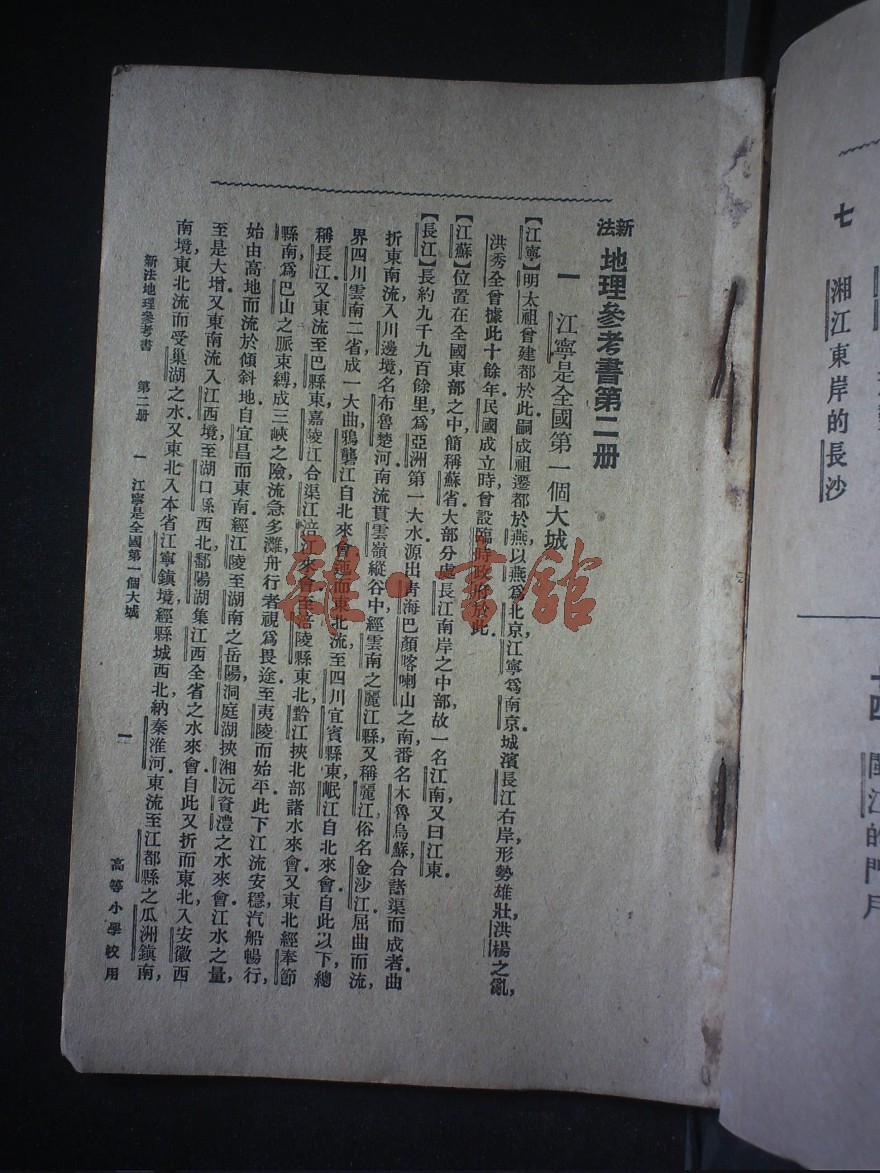 七　湘江東岸的長沙
十四　閩江的門戶
新法 地理參考書第二册
一　江寧是全國第一個大城
【江寧】明太祖曾建都於此，嗣成祖遷都於燕，以燕爲北京，江寧爲南京，城濱長江右岸，形勢雄壯，洪楊之亂，
洪秀全曾據此十餘年，民國成立時，曾設臨時政府於此。
【江蘇】位置在全國東部之中，簡稱蘇省，大部分處長江南岸之中部，故一名江南，又曰江東。
【長江】長約九千九百餘里，爲亞洲第一大水，源出青海巴顏喀喇山之南，番名木魯烏蘇，合諸渠而成者，曲
折東南流，入川邊境，名布魯楚河，南流貫雲嶺縱谷中，經雲南之麗江縣，又稱麗江，俗名金沙江，屈曲而流，
界四川雲南二省，成一大曲，鴉礱江自北來會，迤而東北流，至四川宜賓縣東，岷江自北來會，自此以下，總
稱長江，又東流至巴縣東，嘉陵江合渠江涪江來會，至涪陵縣東北，黔江挾北部諸水來會，又東北經奉節
縣南，爲巴山之脈束縛，成三峽之險，流急多灘，舟行者視爲畏途，至夷陵而始平，此下江流安穩，汽船暢行，
始由高地而流於傾斜地，自宜昌而東南，經江陵至湖南之岳陽，洞庭湖挾湘沅資澧之水來會，江水之量，
至是大增，又東南流入江西境，至湖口縣西北，鄱陽湖集江西全省之水來會，自此又折而東北，入安徽西
南境，東北流而受巢湖之水，又東北入本省江寧鎮境，經縣城西北，納秦淮河，東流至江都縣之瓜洲鎮南，
新法地理參考書　第二册　一　江寧是全國第一個大城　一　高等小學校用
雜·書館